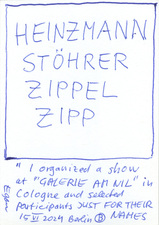 HEINZMANN
STÖHRER
ZIPPEL
ZIPP
" I organized a show
at "GALERIE AM NIL" in
Cologne and selected
participants JUST FOR THEIR
15 VI 2024 Berlin Ⓑ NAMES